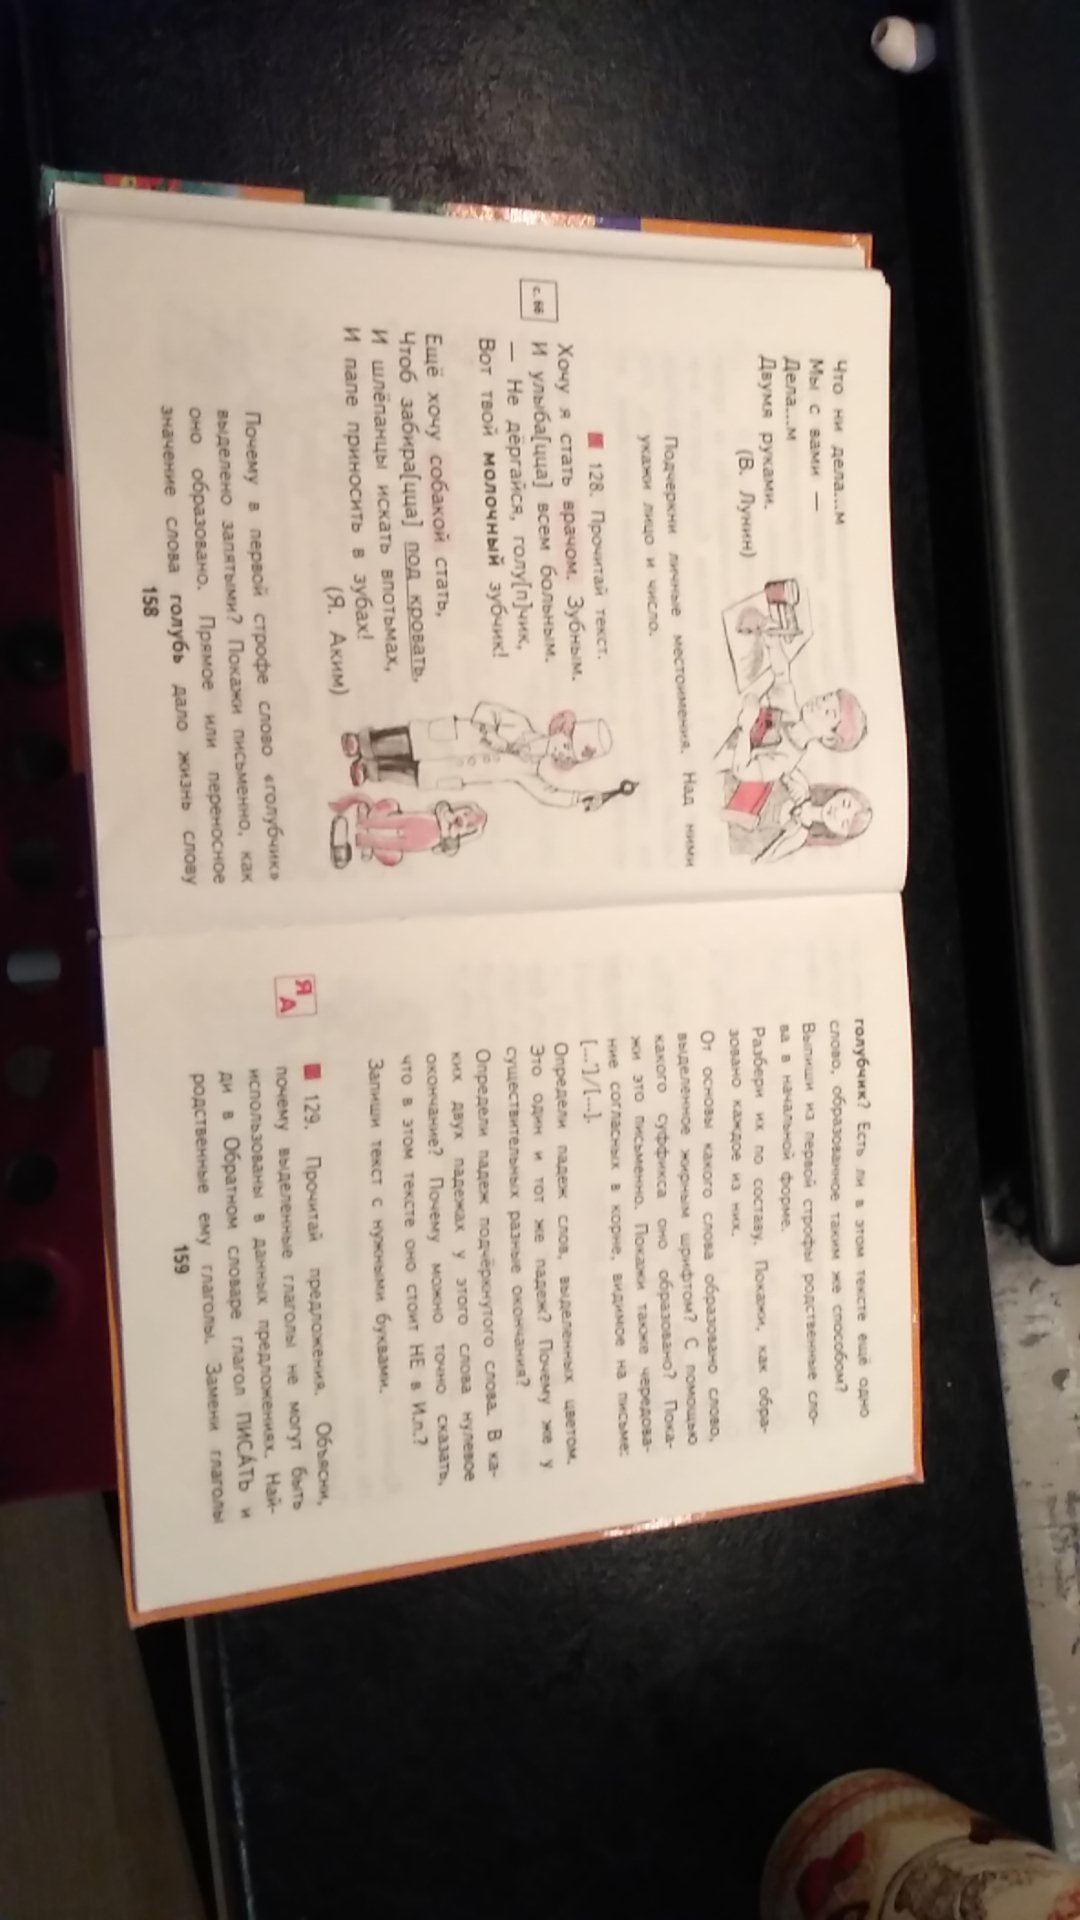 Что ни дела...м
Мы с вами —
Дела...м
Двумя руками.
(В. Лунин)
Подчеркни личные местоимения. Над ними
укажи лицо и число.
128. Прочитай текст.
Хочу я стать врачом. Зубным.
с. 66
И улыба[цца] всем больным.
— Не дёргайся, голу[п]чик,
Вот твой молочный зубчик!
Ещё хочу собакой стать,
Чтоб забира[цца] под кровать,
И шлёпанцы искать впотьмах,
И папе приносить в зубах!
(Я. Аким)
Почему в первой строфе слово «голубчик»
выделено запятыми? Покажи письменно, как
оно образовано. Прямое или переносное
значение слова голубь дало жизнь слову
158
голубчик? Есть ли в этом тексте ещё одно
слово, образованное таким же способом?
Выпиши из первой строфы родственные сло-
ва в начальной форме.
Разбери их по составу. Покажи, как обра-
зовано каждое из них.
От основы какого слова образовано слово,
выделенное жирным шрифтом? С помощью
какого суффикса оно образовано? Пока-
жи это письменно. Покажи также чередова-
ние согласных в корне, видимое на письме:
[...']/[...].
Определи падеж слов, выделенных цветом.
Это один и тот же падеж? Почему же у
существительных разные окончания?
Определи падеж подчёркнутого слова. В ка-
ких двух падежах у этого слова нулевое
окончание? Почему можно точно сказать,
что в этом тексте оно стоит НЕ в И.п.?
Запиши текст с нужными буквами.
Я А
129. Прочитай предложения. Объясни,
почему выделенные глаголы не могут быть
использованы в данных предложениях. Най-
ди в Обратном словаре глагол ПИСА́ТЬ и
родственные ему глаголы. Замени глаголы
159